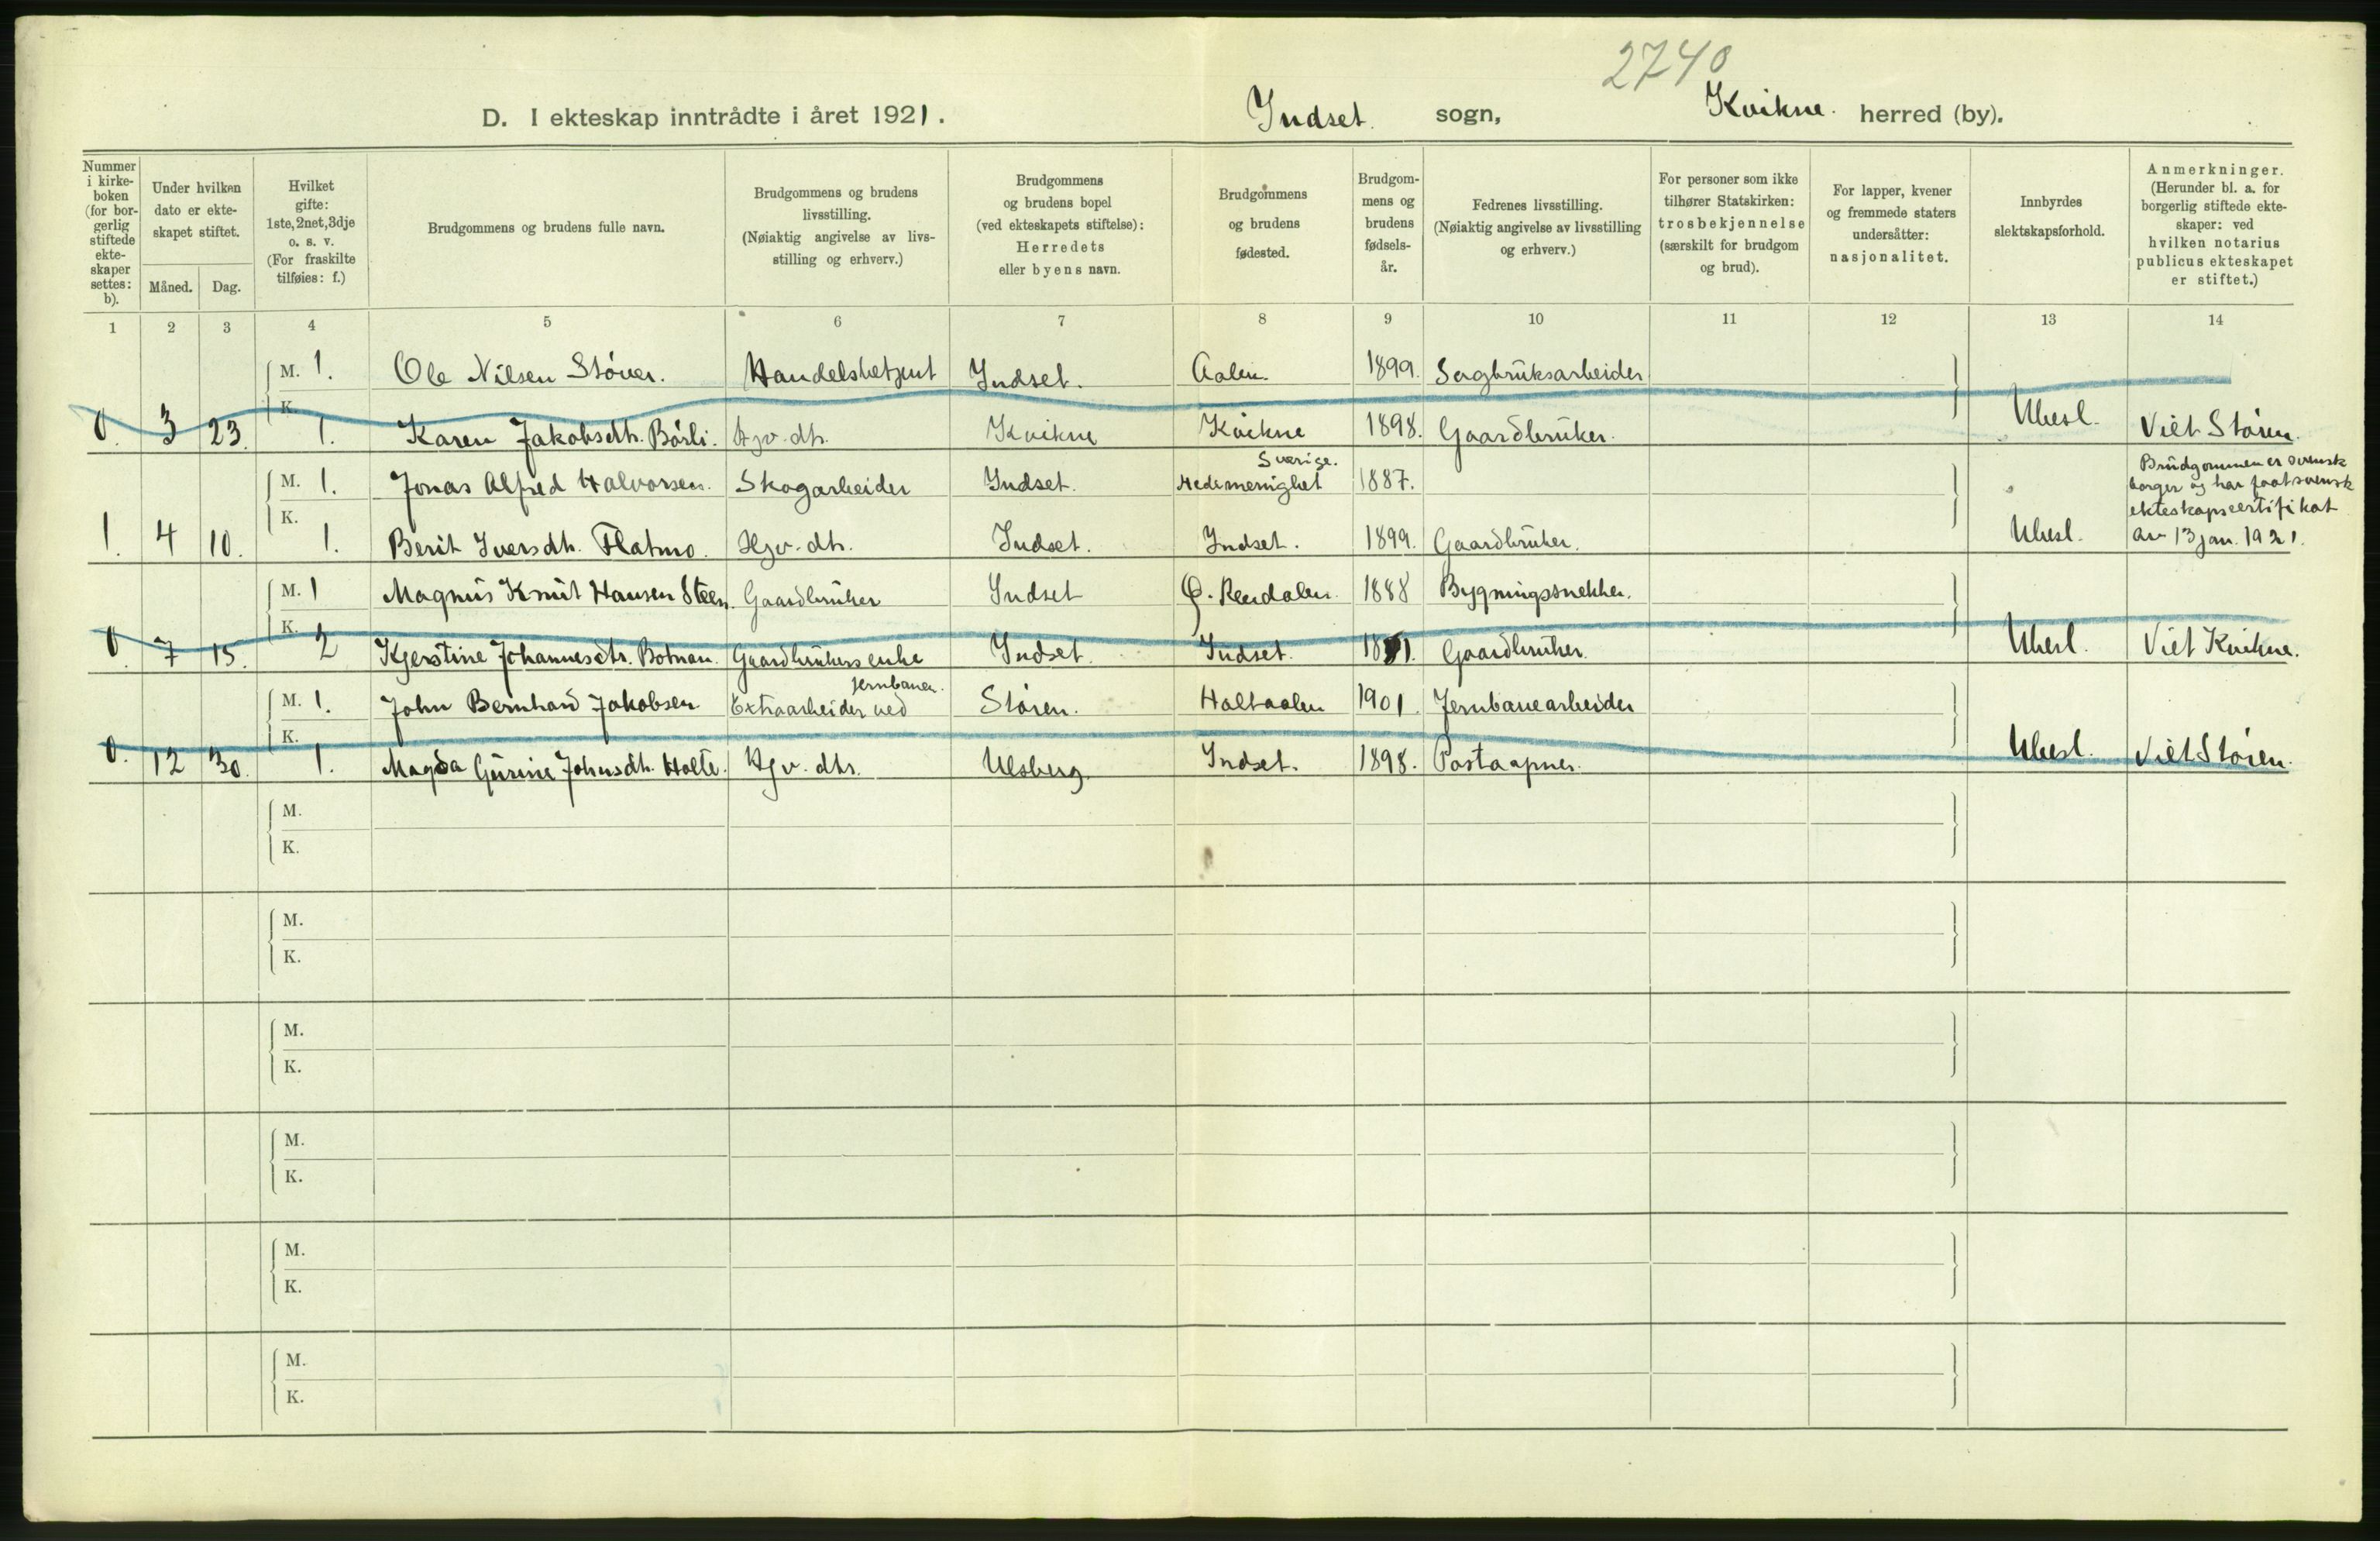 2740
D. I ekteskap inntrådte i året 1921. Indset sogn, Kvikne herred (by).
Nummer i kirke-boken (for bor-gerlig stiftede ekte-skaper settes: b).
Under hvilken dato er ekte-skapet stiftet.
Måned. Dag.
Hvilket gifte: 1ste, 2net, 3dje o. s. v. (For fraskilte tilføies: f.)
Brudgommens og brudens fulle navn.
Brudgommens og brudens livsstilling. (Nøiaktig angivelse av livs-stilling og erhverv.)
Brudgommens og brudens bopel (ved ekteskapets stiftelse): Herredets eller byens navn.
Brudgommens og brudens fødested.
Brudgom-mens og brudens fødsels-år.
Fedrenes livsstilling. (Nøiaktig angivelse av livsstilling og erhverv.)
For personer som ikke tilhører Statskirken: trosbekjennelse (særskilt for brudgom og brud).
For lapper, kvener og fremmede staters undersåtter: nasjonalitet.
Innbyrdes slektskapsforhold.
Anmerkninger. (Herunder bl. a. for borgerlig stiftede ekte-skaper: ved hvilken notarius publicus ekteskapet er stiftet.)
1 2 3 4 5 6 7 8 9 10 11 12 13 14
M. 1. Ole Nilsen Stöver. Handelsbetjent Indset. Aalen. 1899. Sagbruksarbeider
K.
0. 3 23. 1. Karen Jakobsdtr. Börli. Hjv. dtr. Kvikne Kvikne 1898. Gaardbruker. Ubesl. Viet Stören.
Sverige. Brudgommen er svensk
M. 1. Jonas Alfred Halvorsen. Skogarbeider Indset. Hedemenighet 1887. borger og har faat svensk
K. ekteskapscertifikat
1. 4 10. 1. Berit Iversdtr. Flatmo. Hjv. dtr. Indset. Indset. 1899. Gaardbruker. Ubesl. av 13 jan. 1921.
M. 1 Magnus Knut Hansen Steen. Gaardbruker Indset Ø. Rendalen. 1888 Bygningssnekker.
K.
0. 7 15. 2 Kjerstine Johannesdtr. Botnan. Gaardbrukersenke Indset. Indset. Gaardbruker. Ubesl. Viet Kvikne.
jernbanen.
M. 1. John Bernhard Jakobsen Extraarbeider ved Stören. Holtaalen 1901. Jernbanearbeider
K.
0. 12 30. 1. Magda Gurine Johnsdtr. Holte. Hjv. dtr. Ulsberg. Indset. 1898. Postaapner. Ubesl. Viet Stören.
M.
K.
M.
K.
M.
K.
M.
K.
M.
K.
M.
K.